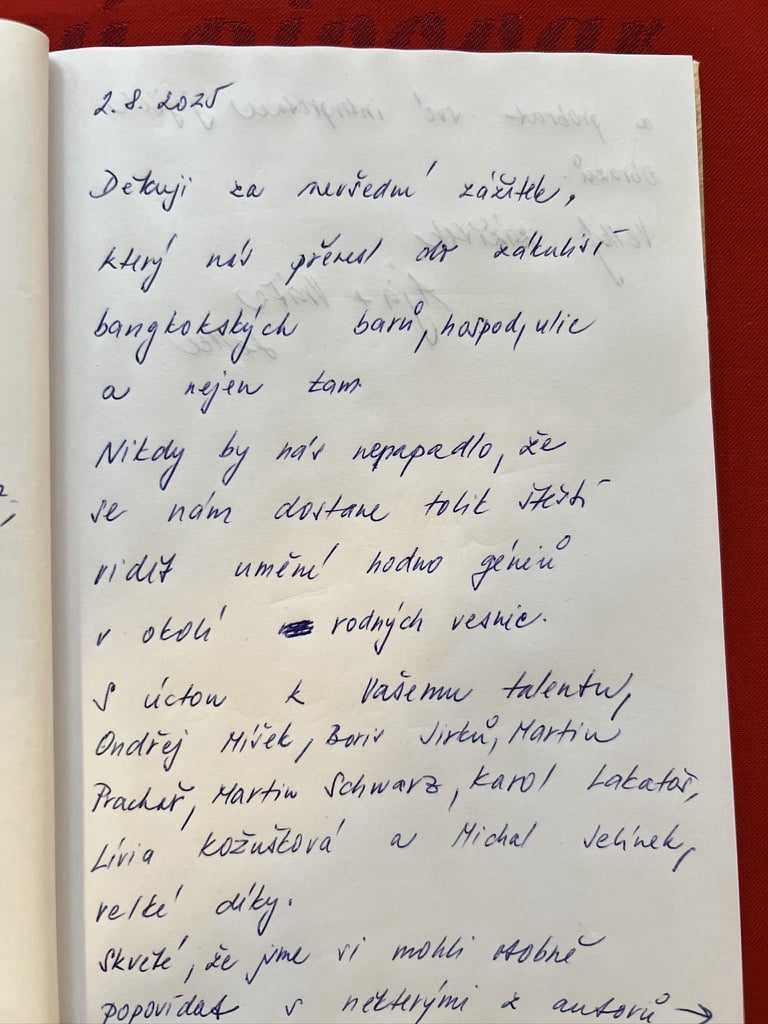 2.8.2025
Děkuji za nevšední zážitek,
který nás přenesl do zákulisí
bangkokských barů, hospod, ulic
a nejen tam
Nikdy by nás nepapadlo, že
se nám dostane tolik štěstí
vidět umění hodno géniů
v okolí rodných vesnic.
S úctou k Vašemu talentu,
Ondřej Míšek, Boris Jirků, Martin
Prachař, Martin Schwarz, Karol Lakatoš,
Lívia Kožušková a Michal Jelínek,
velké díky.
Skvělé, že jsme si mohli osobně
popovídat s některými z autorů →